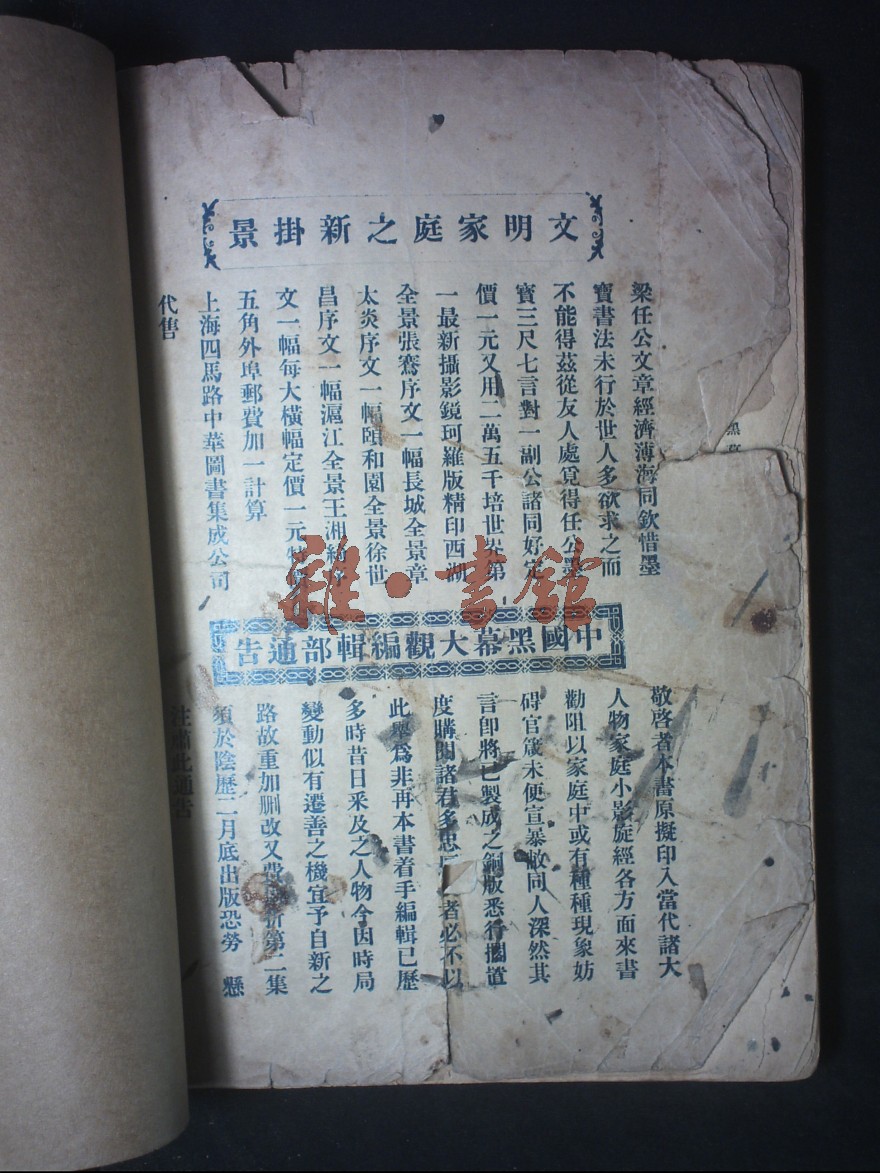 文明家庭之新掛景
梁任公文章經濟薄海同欽惜墨
寶書法未行於世人多欲求之而
不能得茲從友人處覓得任公墨
寶三尺七言對一副公諸同好定
價一元又用二萬五千培世界第
一最新攝影鏡珂羅版精印西湖
全景張謇序文一幅長城全景章
太炎序文一幅頤和園全景徐世
昌序文一幅滬江全景王湘綺序
文一幅每大橫幅定價一元特價
五角外埠郵費加一計算
上海四馬路中華圖書集成公司
代售
中國黑幕大觀編輯部通告
敬啓者本書原擬印入當代諸大
人物家庭小影旋經各方面來書
勸阻以家庭中或有種種現象妨
碍官箴未便宣暴敝同人深然其
言即將已製成之銅版悉行擱置
度購閱諸君多忠厚者必不以
此舉爲非再本書着手編輯已歷
多時昔日采及之人物今因時局
變動似有遷善之機宜予自新之
路故重加删改又費第二集
須於陰歷二月底出版恐勞 懸
注肅此通告
黑
雜·書館